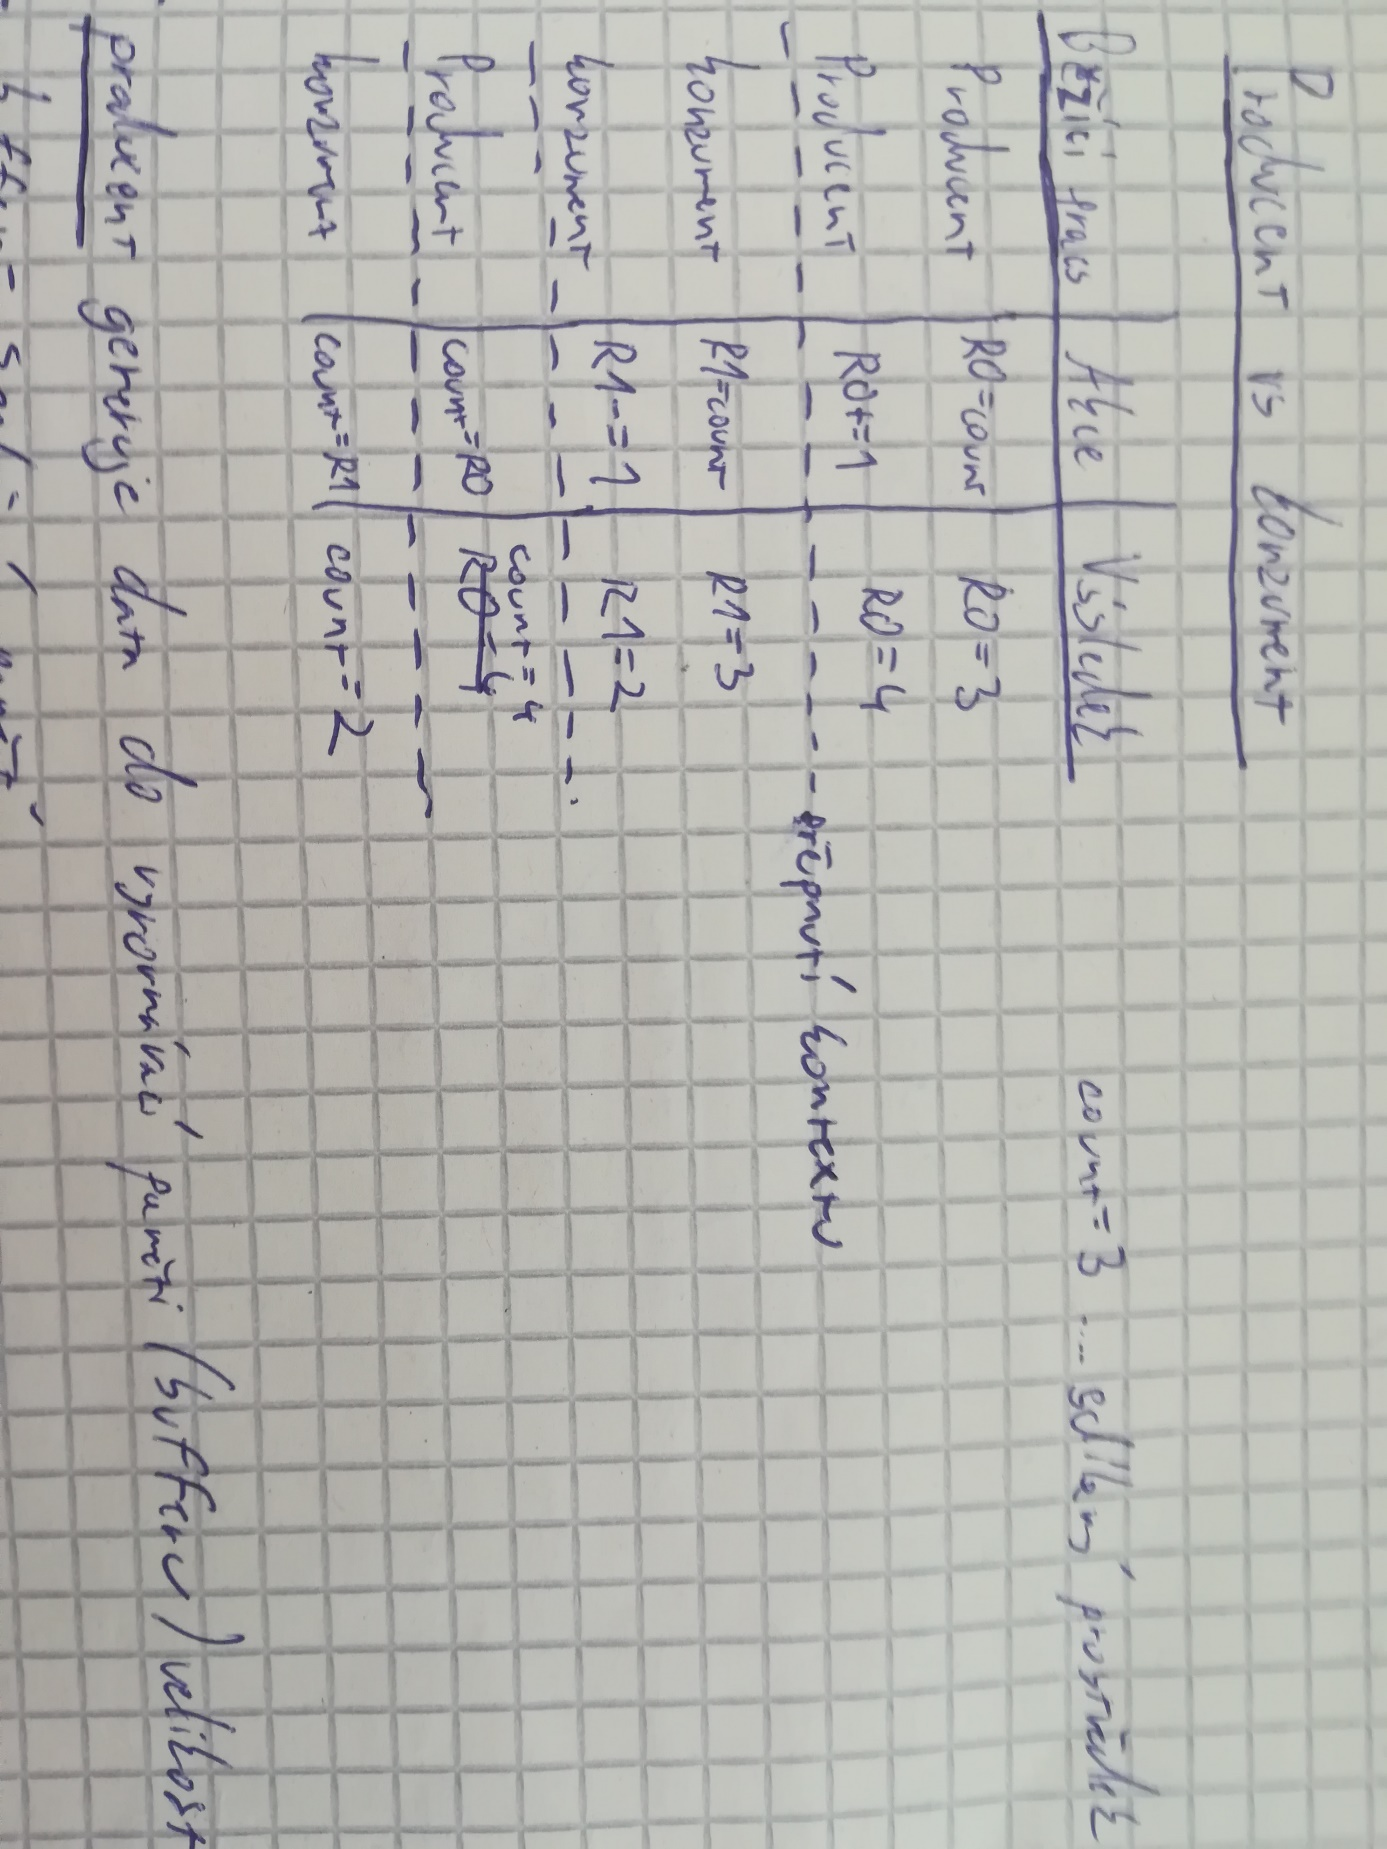 Producent vs konzument
Běžící proces Akce Výsledek count = 3 .... sdílený prostředek
Producent R0=count R0=3
Producent R0+=1 R0=4
přepnutí kontextu
konzument R1=count R1=3
konzument R1-=1 R1=2
Producent count=R0 R0=4 count=4
konzument count=R1 count=2
producent generuje data do vyrovnávací paměti (bufferu) velikost